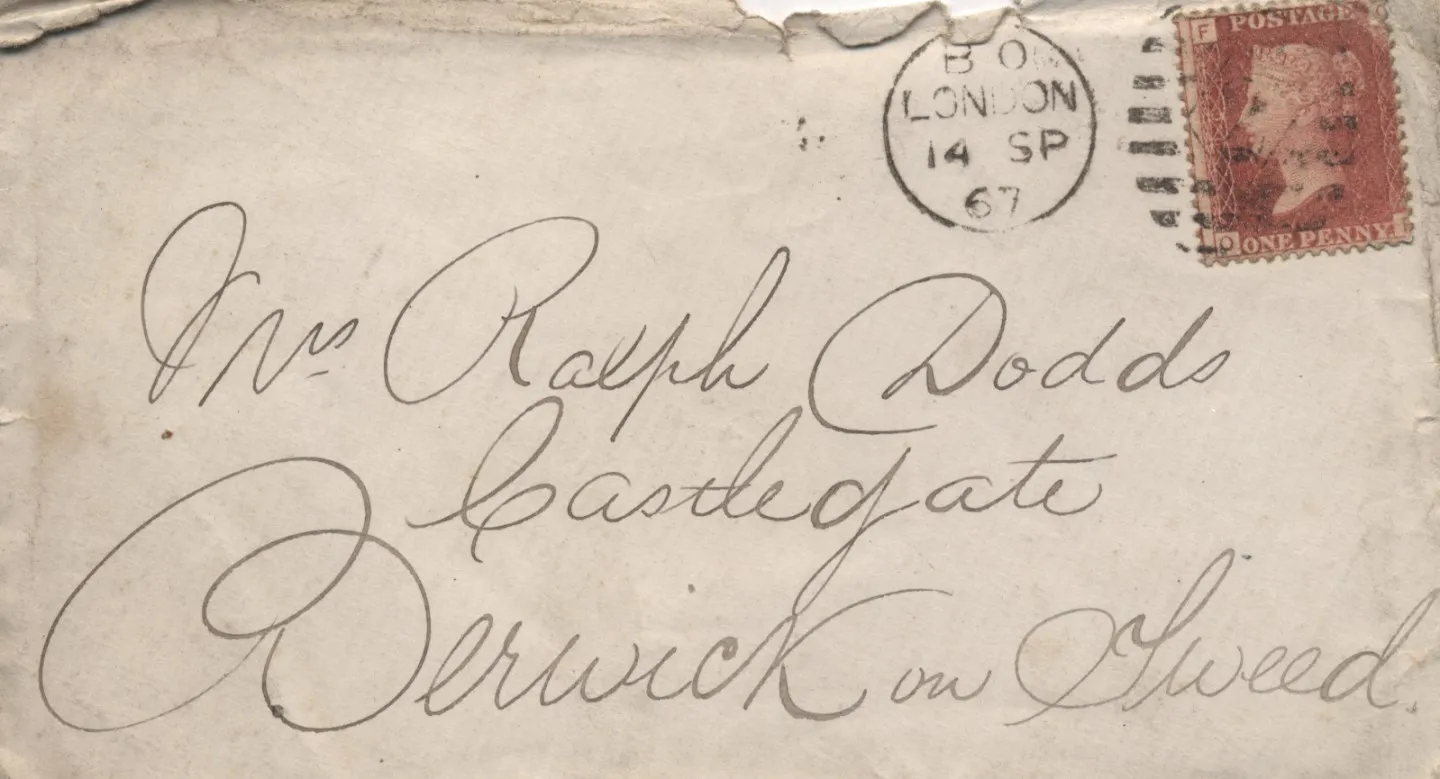 B O
LONDON
14 SP
67
F
POSTAGE
O
ONE PENNY
Mrs Ralph Dodds
Castlegate
Berwick on Tweed.